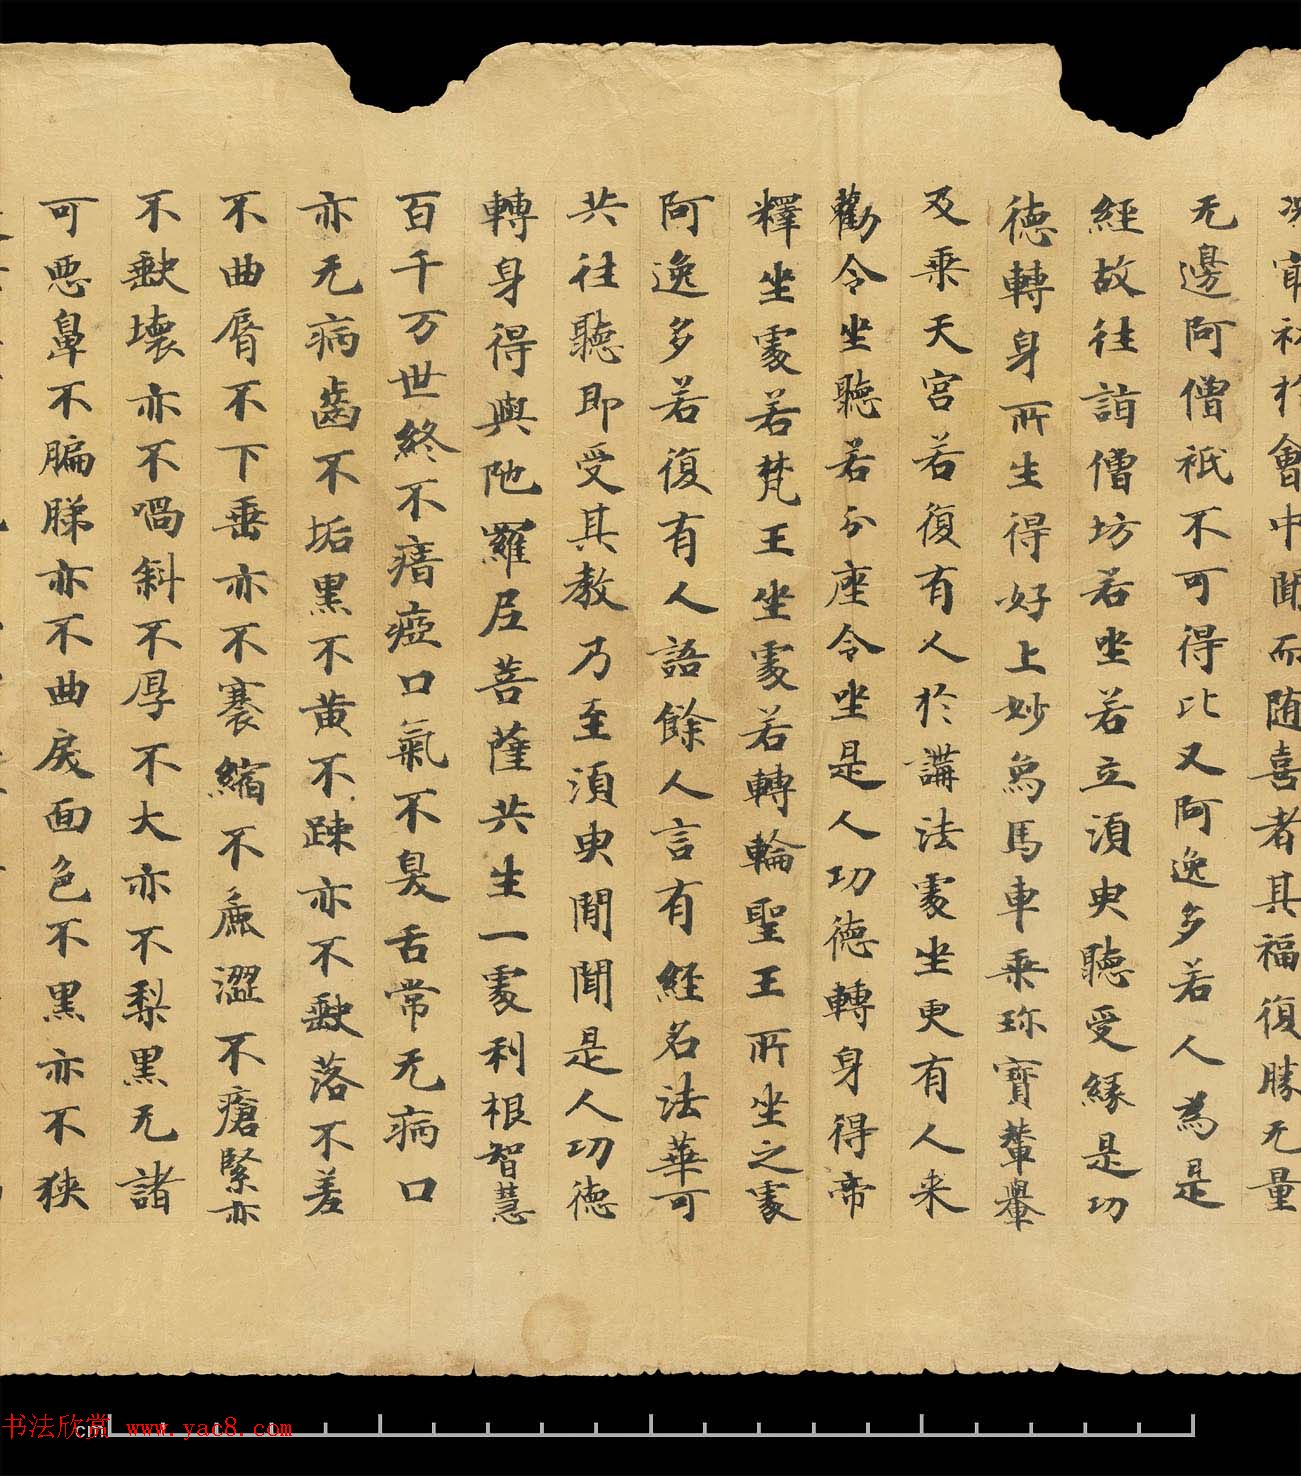 況最初於會中聞而随喜者其福復勝无量
无邊阿僧祇不可得比又阿逸多若人為是
經故往詣僧坊若坐若立須臾聽受緣是功
德轉身所生得好上妙象馬車乘珎寶輦轝
及乘天宮若復有人於講法處坐更有人来
勸令坐聽若分座令坐是人功德轉身得帝
釋坐處若梵王坐處若轉輪聖王所坐之處
阿逸多若復有人語餘人言有經名法華可
共往聽即受其教乃至須臾間聞是人功德
轉身得與陁羅尼菩薩共生一處利根智慧
百千万世終不瘖瘂口氣不臭舌常无病口
亦无病齒不垢黑不黄不踈亦不缺落不差
不曲脣不下垂亦不褰縮不麁澀不瘡緊亦
不缺壞亦不喎斜不厚不大亦不梨黑无諸
可惡鼻不膈䏲亦不曲戾面色不黑亦不狹
cm
书法欣赏 www.yac8.com